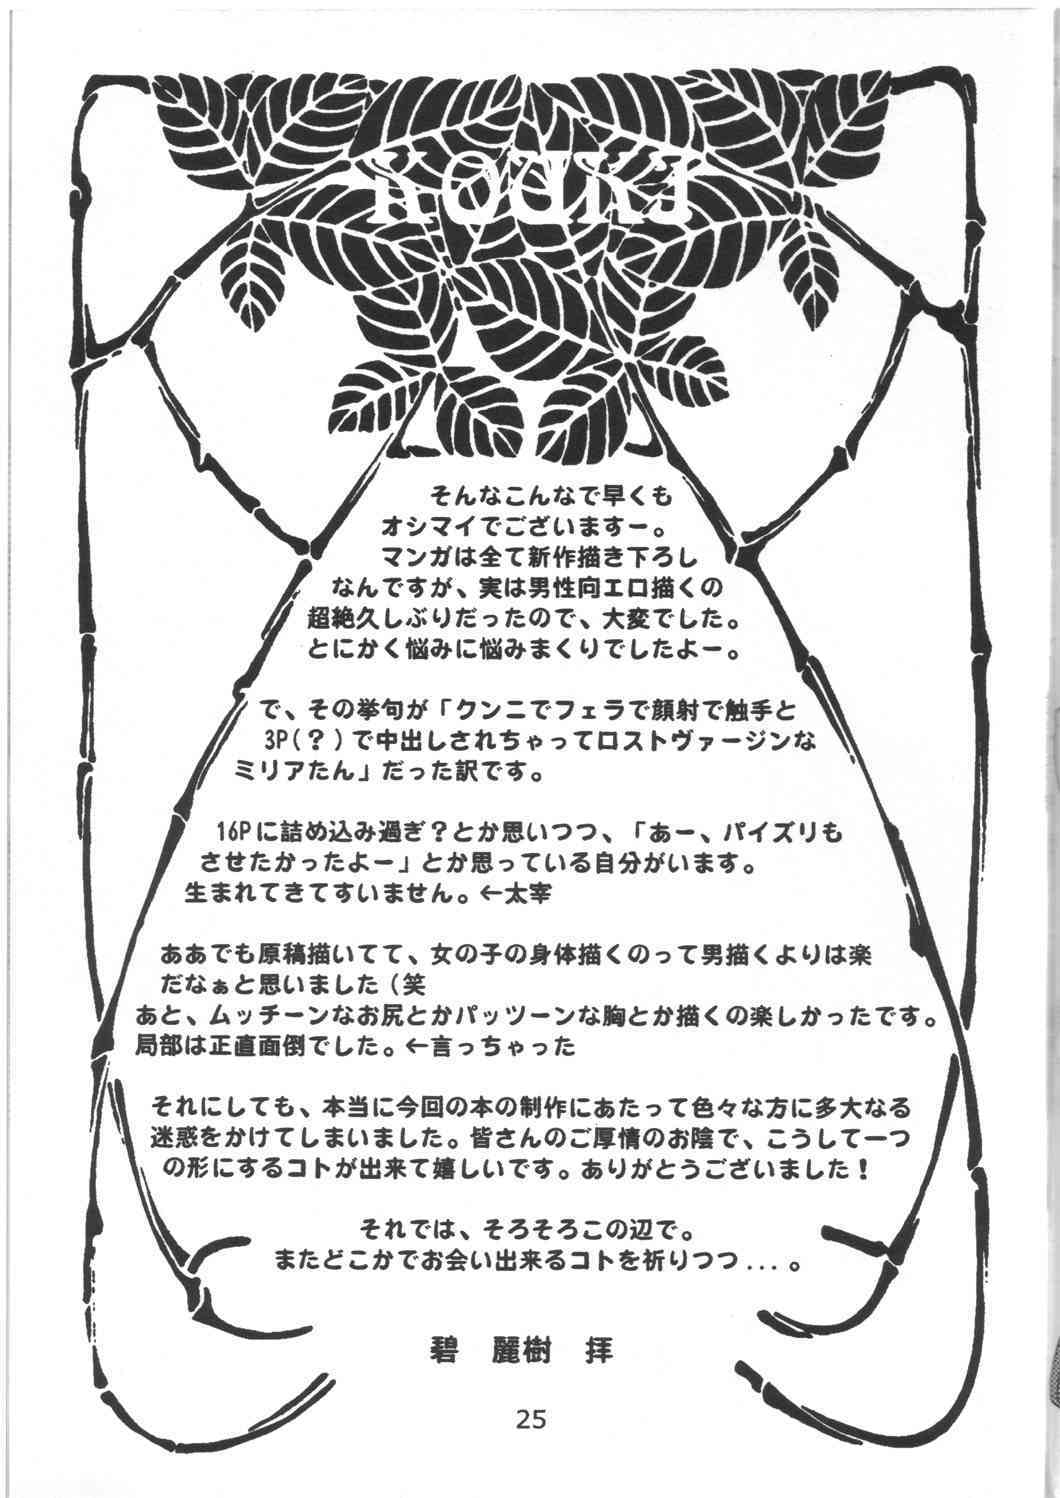 KOUKI
そんなこんなで早くも
オシマイでございますー。
マンガは全て新作描き下ろし
なんですが、実は男性向エロ描くの
超絶久しぶりだったので、大変でした。
とにかく悩みに悩みまくりでしたよー。
で、その挙句が「クンニでフェラで顔射で触手と
3P(？)で中出しされちゃってロストヴァージンな
ミリアたん」だった訳です。
16Pに詰め込み過ぎ？とか思いつつ、「あー、パイズリも
させたかったよー」とか思っている自分がいます。
生まれてきてすいません。←太宰
ああでも原稿描いてて、女の子の身体描くのって男描くよりは楽
だなぁと思いました（笑
あと、ムッチーンなお尻とかパッツーンな胸とか描くの楽しかったです。
局部は正直面倒でした。←言っちゃった
それにしても、本当に今回の本の制作にあたって色々な方に多大なる
迷惑をかけてしまいました。皆さんのご厚情のお陰で、こうして一つ
の形にするコトが出来て嬉しいです。ありがとうございました！
それでは、そろそろこの辺で。
またどこかでお会い出来るコトを祈りつつ...。
碧　麗樹　拝
25